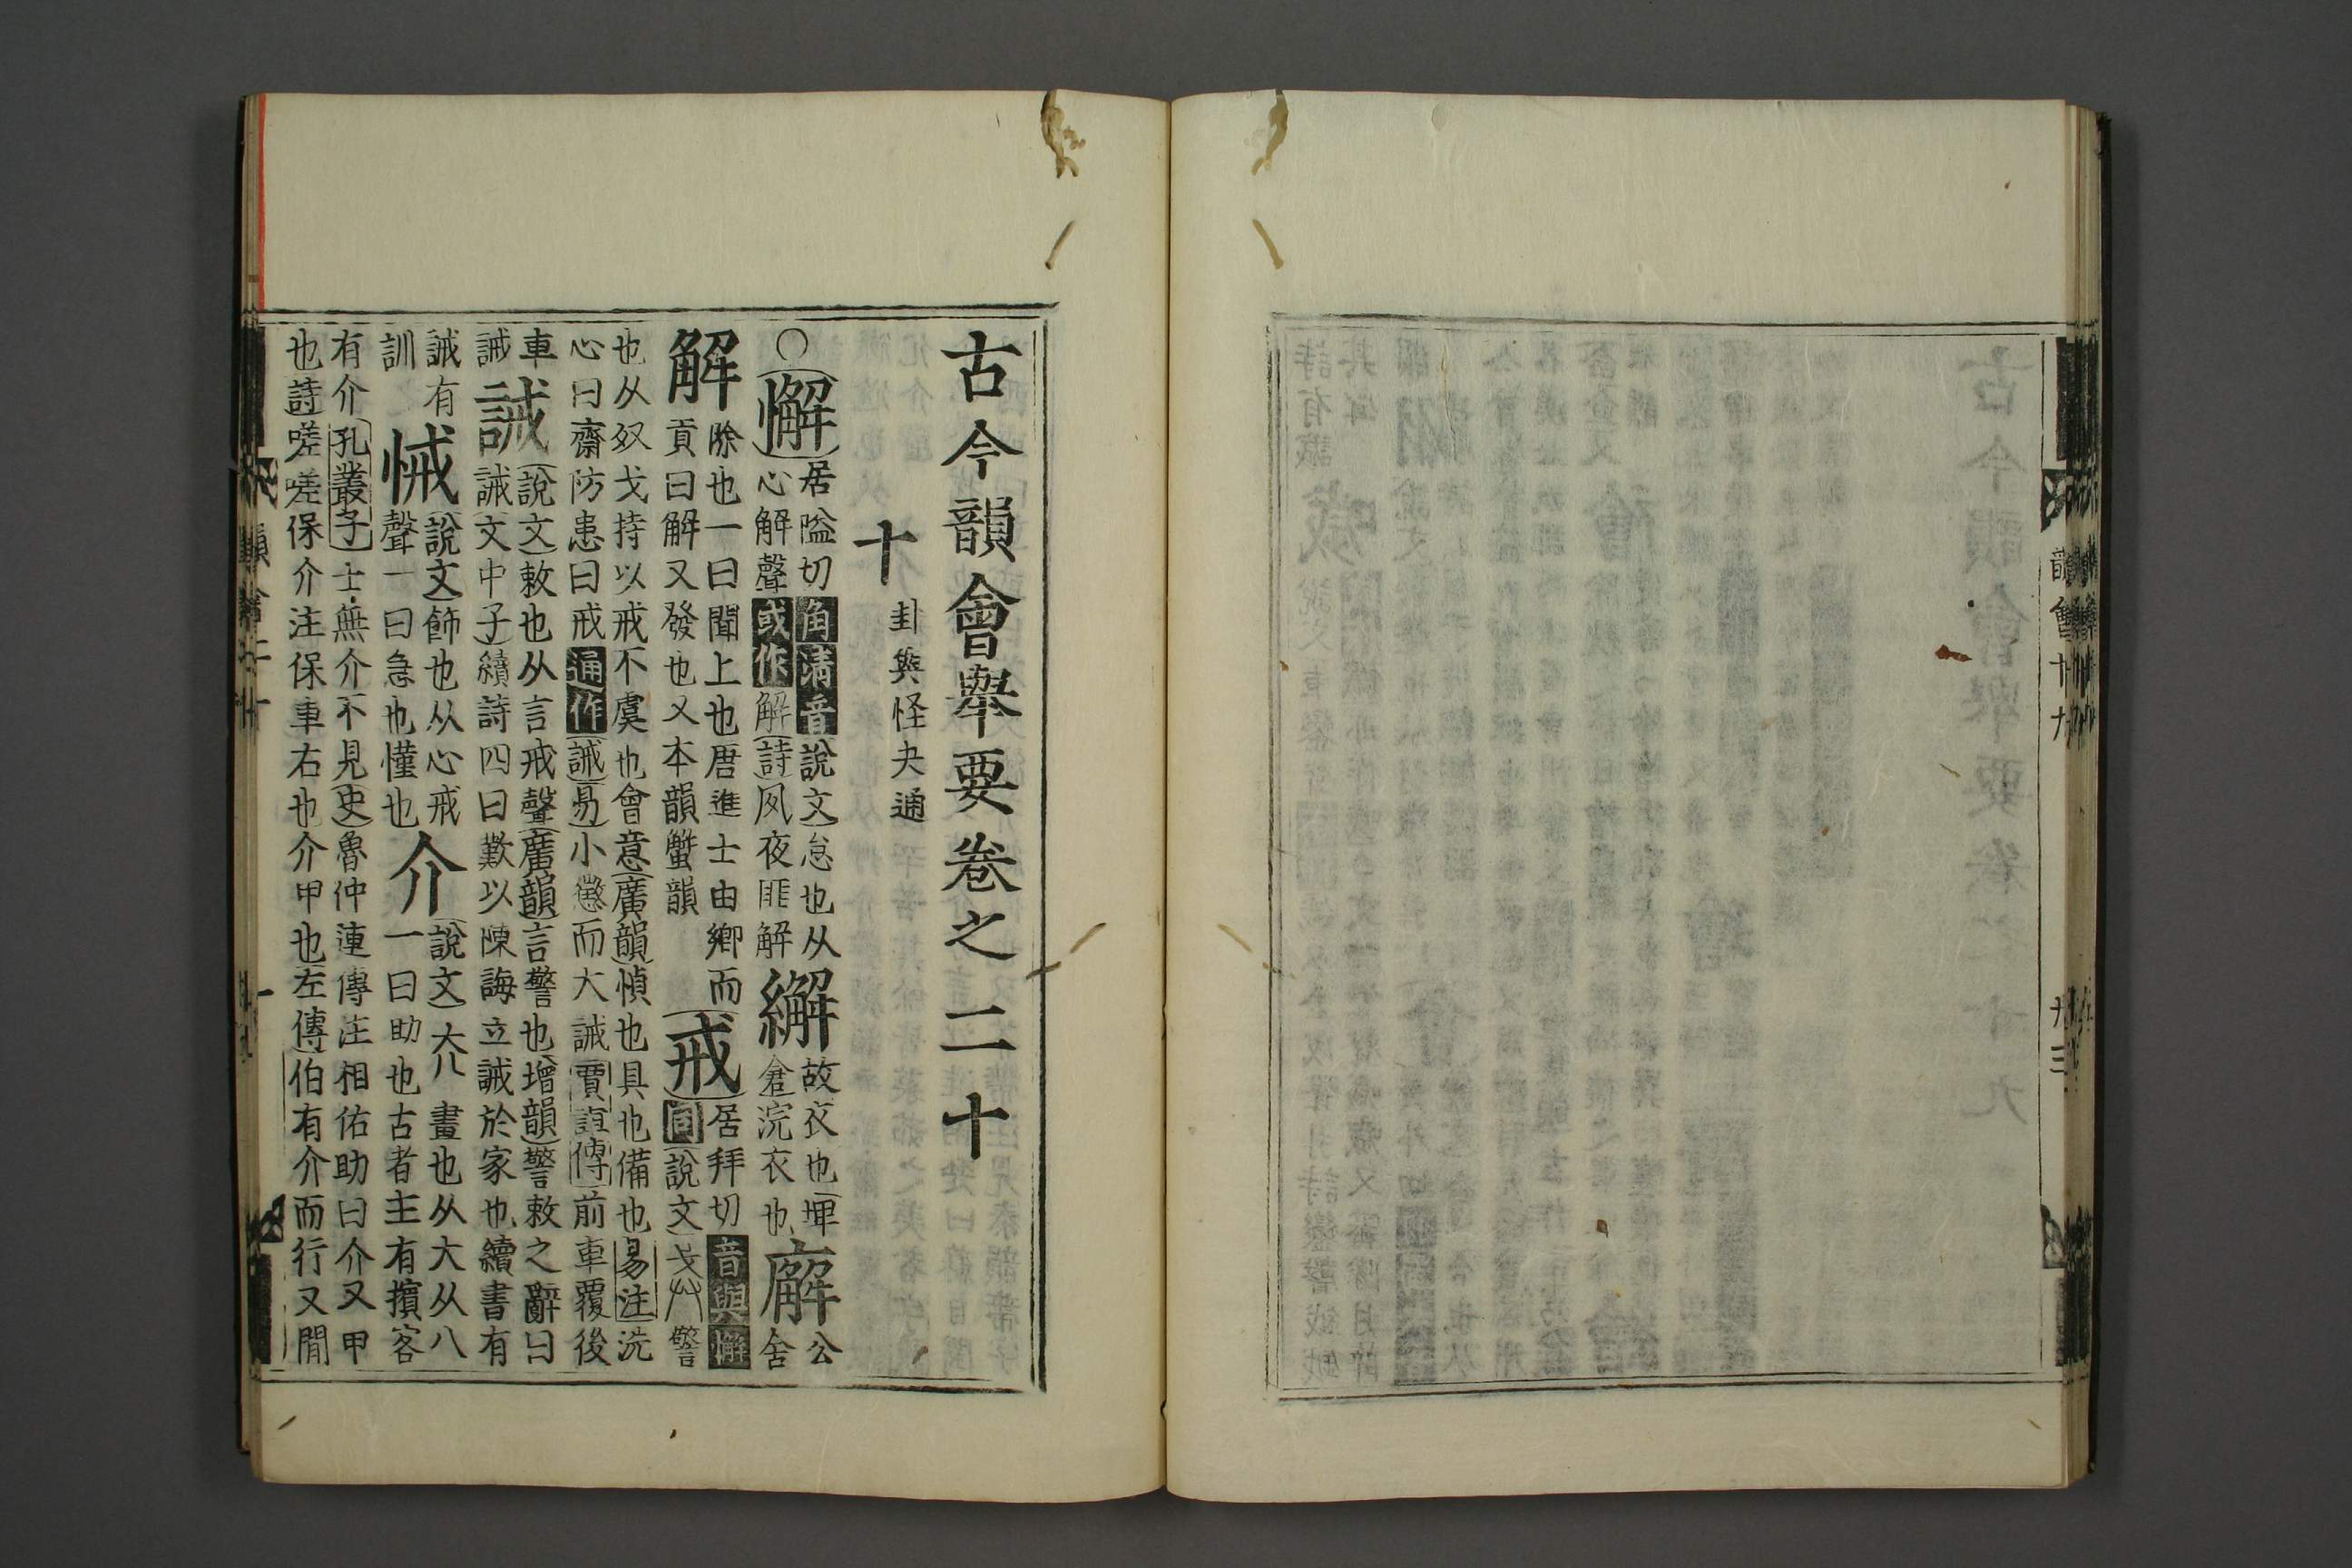 古今韻會舉要卷之二十
十 卦與怪夬通
○懈 居隘切角清音說文怠也从
心解聲或作解詩夙夜匪解 繲 故衣也㡓
倉浣衣也 廨 公
舍
解 除也一曰聞上也唐進士由鄉而
貢曰解又發也又本韻蟹韻 戒 居拜切音與懈
同說文 警
也从廾戈持以戒不虞也會意廣韻慎也具也備也易注洗
心曰齋防患曰戒通作誡易小懲而大誡賈誼傳前車覆後
車
誡 誡 說文敕也从言戒聲廣韻言警也增韻警敕之辭曰
誡文中子續詩四曰歎以陳誨立誡於家也續書有
誡有
訓 悈 說文飾也从心戒
聲一曰急也慬也 介 說文 畫也从大从八
一曰助也古者主有擯客
有介孔叢子士無介不見史魯仲連傳注相佑助曰介又甲
也詩嗟嗟保介注保車右也介甲也左傳伯有介而行又閒
韻會十九
九三